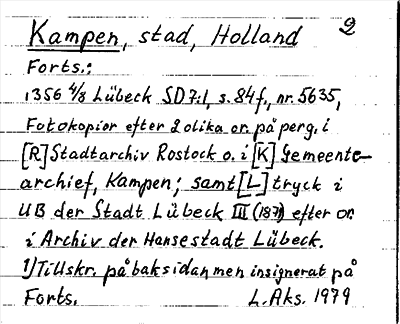 Kampen, stad, Holland 2
Forts.:
1356 4/8 Lübeck SD 7:1, s. 84f, nr. 5635,
Fotokopior efter 2 olika or. på perg. i
[R] Stadtarchiv Rostock o. i [K] Gemeente-
archief, Kampen; samt [L] tryck i
UB der Stadt Lübeck III (1871) efter or.
i Archiv der Hansestadt Lübeck.
1) Tillskr. på baksidan men insignerat på
Forts. L. Aks. 1979